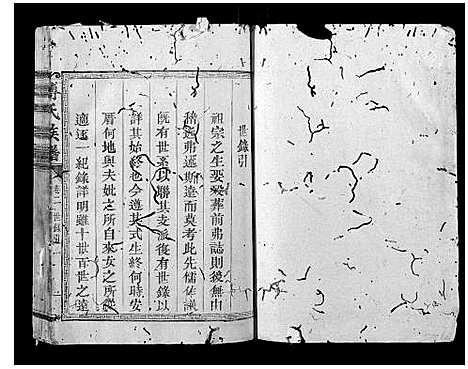 世錄引
祖宗之生娶葬前弗誌則後無由
稽遠弗遞斯遠而莫考此先儒
既有世系以聯其支派復有世錄以
詳其始終也今遵其式生終何時安
厝何地與夫妣之所自來女之所從
適逐一紀錄詳明雖十世百世之遠
氏族譜
卷一世錄引